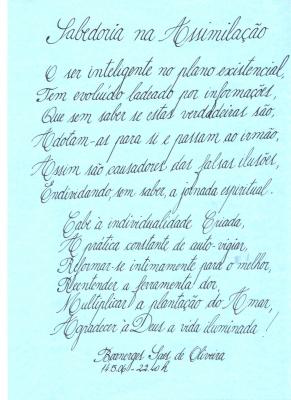 Sabedoria na Assimilação
O ser inteligente no plano existencial,
Tem evoluído ladeado por informações,
Que sem saber se estas verdadeiras são,
Adotam-as para si e passam ao irmão,
Assim são causadores das falsas ilusões,
Endividando, sem saber, a jornada espiritual.
Cabe à individualidade Criada,
A prática constante de auto-vigiar,
Reformar-se intimamente para o melhor,
Reentender a ferramenta dor,
Multiplicar a plantação do Amar,
Agradecer à Deus a vida iluminada!
Boanerges Saes de Oliveira
14.5.06 - 22:40 h